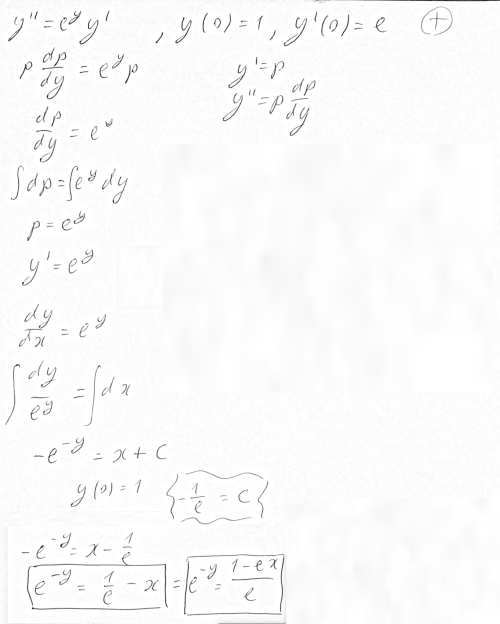 y'' = e^y y' , y(0) = 1 , y'(0) = e (+)
p dp/dy = e^y p
y' = p
y'' = p dp/dy
dp/dy = e^y
∫dp = ∫e^y dy
p = e^y
y' = e^y
dy/dx = e^y
∫ dy/e^y = ∫dx
-e^-y = x + C
y(0) = 1 { -1/e = C }
-e^-y = x - 1/e
e^-y = 1/e - x = e^-y = (1-ex)/e